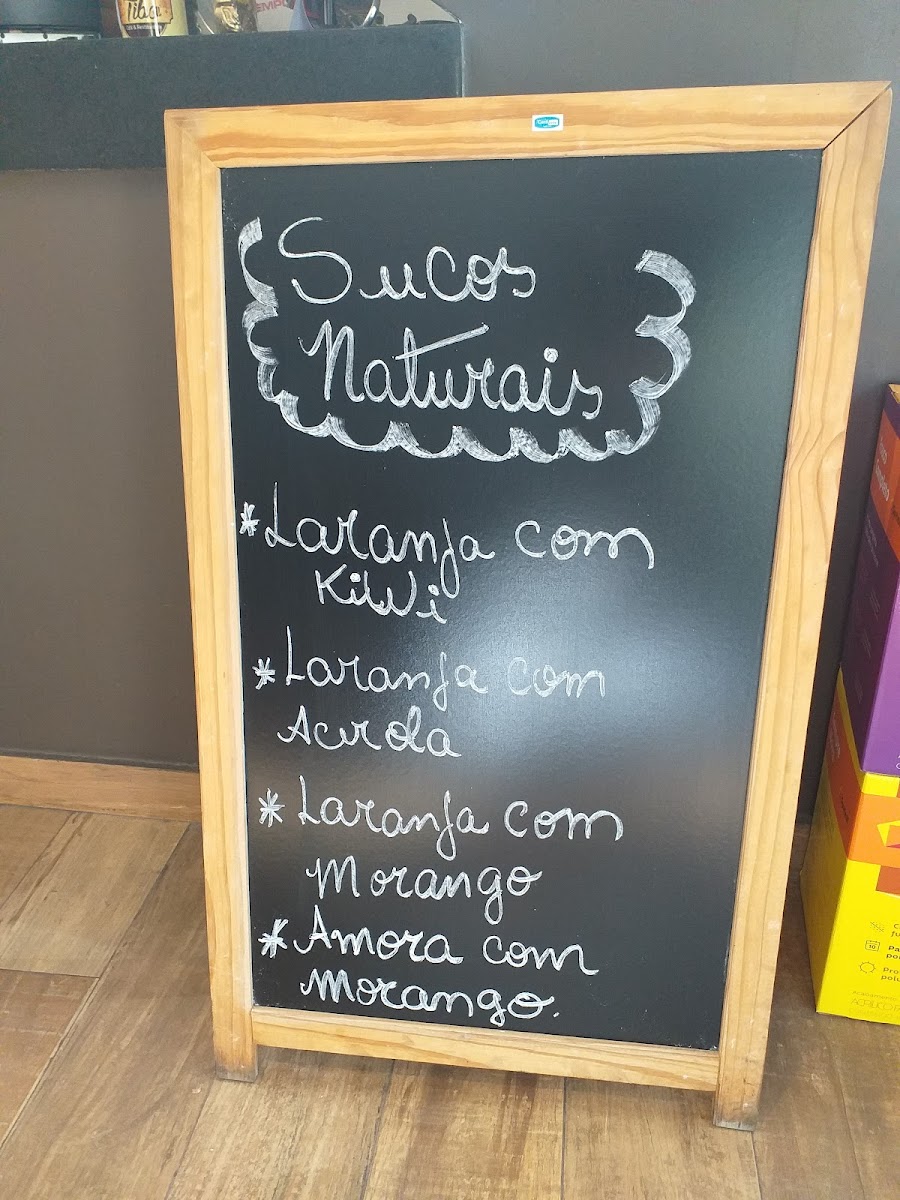 Sucos
Naturais
*Laranja com
Kiwi
*Laranja com
Acrola
*Laranja com
Morango
*Amora com
Morango.